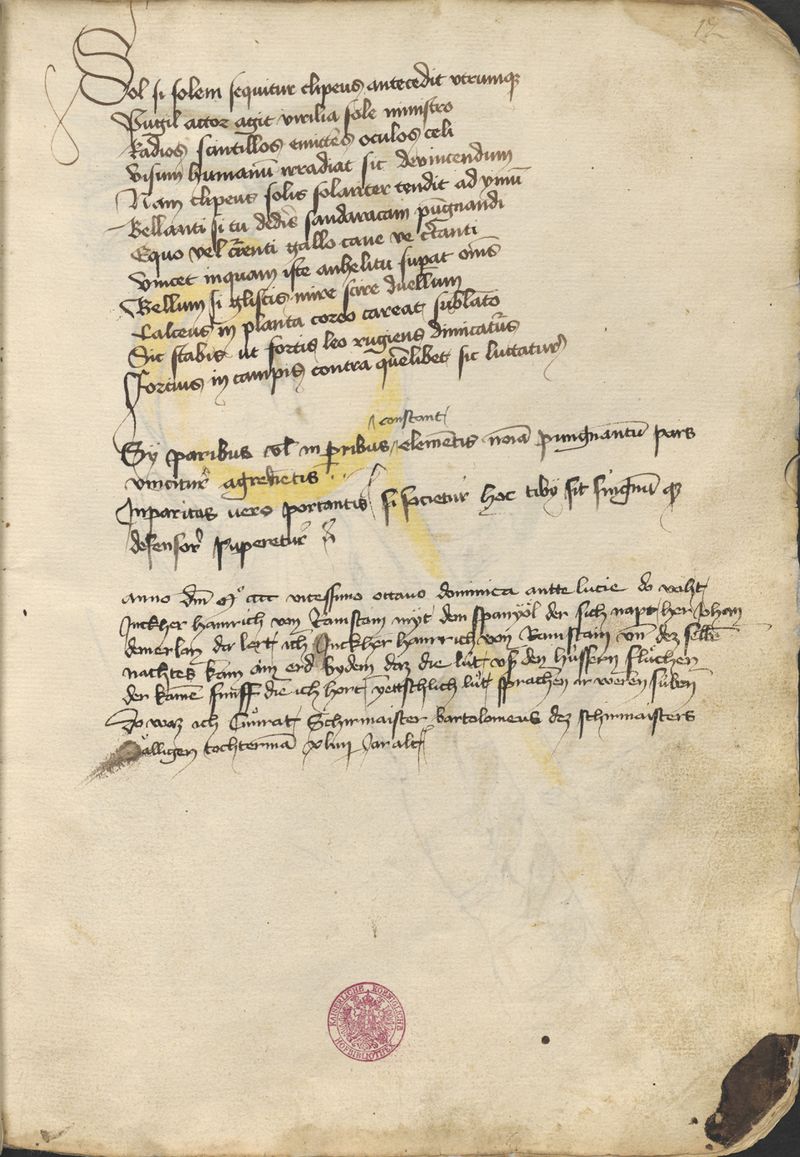 12
Sol si solem sequitur clipeus antecedit utrumque
Pugil actor agit virilia sole ministro
Radios scintillos emittens oculos celi
visum humanū irradiat sic devincendum
Nam clipeus solis solariter tendit ad ymū
Bellanti si tu dederis sandaracam pūgnandi
Equo vel currenti gallo cave ve certanti
vincet inquam iste anhelitu superat omnis
Bellum si gliscis mire scire duellum
Calceus in planta coreo careat sublato
Sic stabis ut fortis leo rugiens dimicaturus
Fortius in campis contra quēlibet sic luctatur
constant
Sy paribus vel in paribus elemētis noīa pungnantū pars
vincitur agredientis
Inparitas vero portantis si societur hoc tiby sit singnū qz
defensor superetur
anno dm̄ Mo cccc vicessimo octavo dominica antte lucie do vaht
Junckher hainrich von Ramstain myt dem spanyöl der sich napt her Johan
demerlan da lert ich Junckher hainrich von Ramstain vn̄ dez selbē
nachtes kam ain erd bydem daz die lüt vß den hüssern fluchen
der kamē fünff die ich hort yettschlich lüt sprachen ir weren süben
Do waz ich Cūnrat Schirmaister bartolomeus dez schirmaisters
sälligen tochtermā xliiij Jar alt
KAISERLICHE KOENIGLICHE HOFBIBLIOTHEK